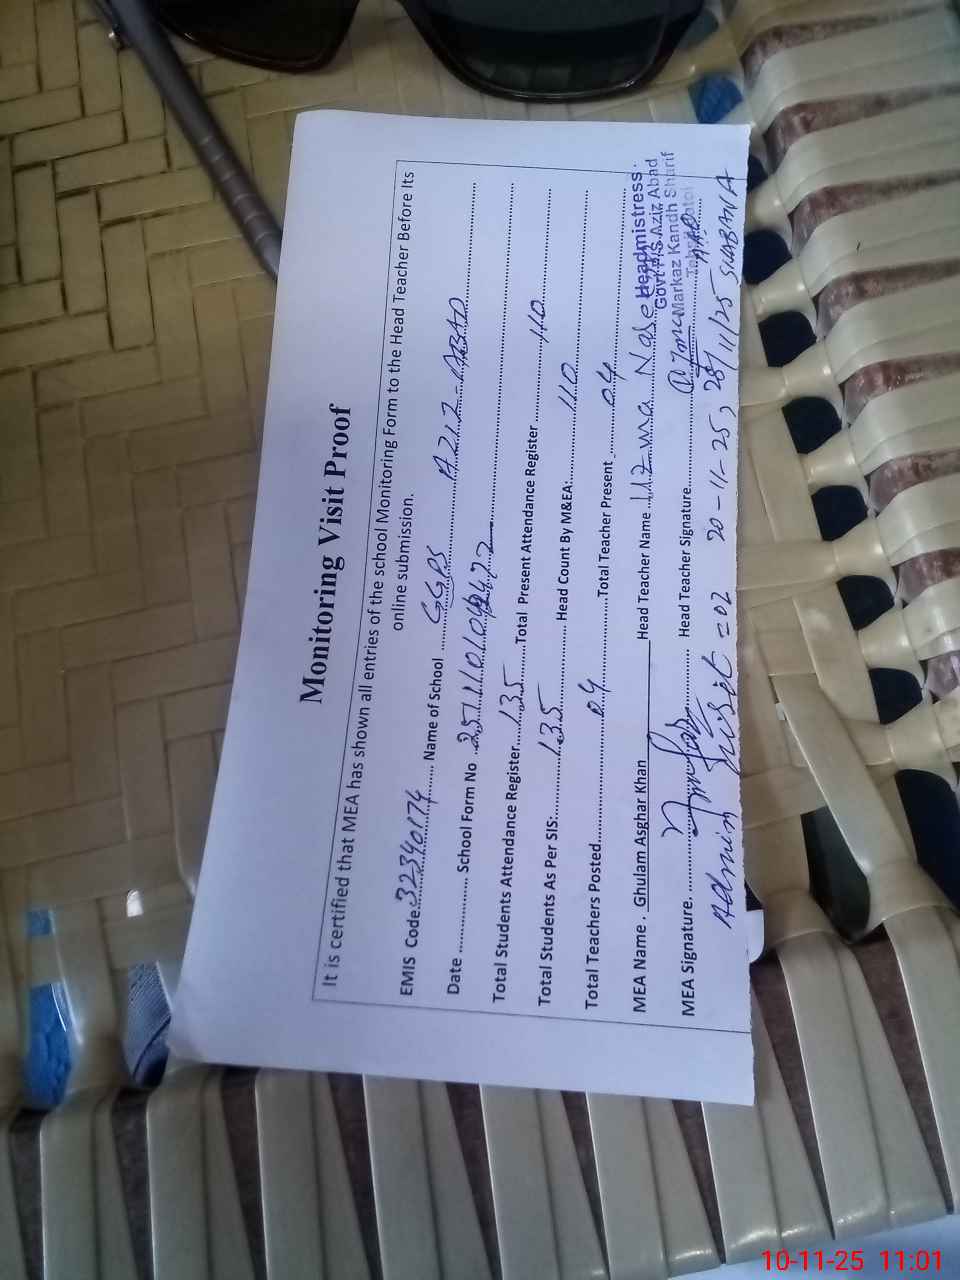 Monitoring Visit Proof
It is certified that MEA has shown all entries of the school Monitoring Form to the Head Teacher Before Its
online submission.
EMIS Code 32340174 Name of School GGPS AZIZ-ABAD
Date .............. School Form No
Total Students Attendance Register 135 Total Present Attendance Register 110
Total Students As Per SIS: 135 Head Count By M&EA: 110
Total Teachers Posted 04 Total Teacher Present 04
MEA Name . Ghulam Asghar Khan Head Teacher Name Uzma
MEA Signature. Head Teacher Signature
Headmistress
Govt P/S Aziz Abad
Markaz Kandh Sharif
Admin visit = 02 20-11-25, 28/11/25 SHABANA
10-11-25 11:01